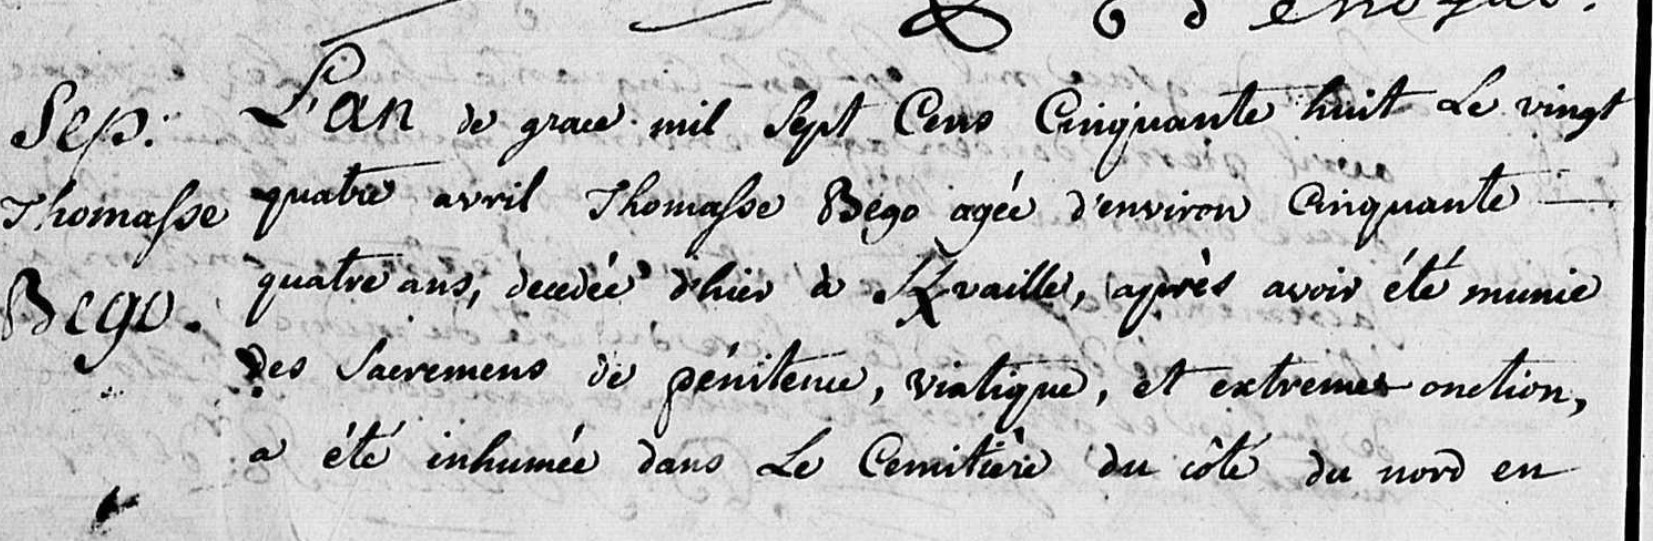 Sep:
Thomasse
Bego.
L'an de grace mil Sept Cens Cinquante huit Le vingt
quatre avril Thomasse Bégo agée d'environ Cinquante
quatre ans, decedée d'hier à Kvaille, après avoir été munie
des Sacremens de pénitence, viatique, et extreme onction,
a été inhumée dans Le Cemitière du côté du nord en